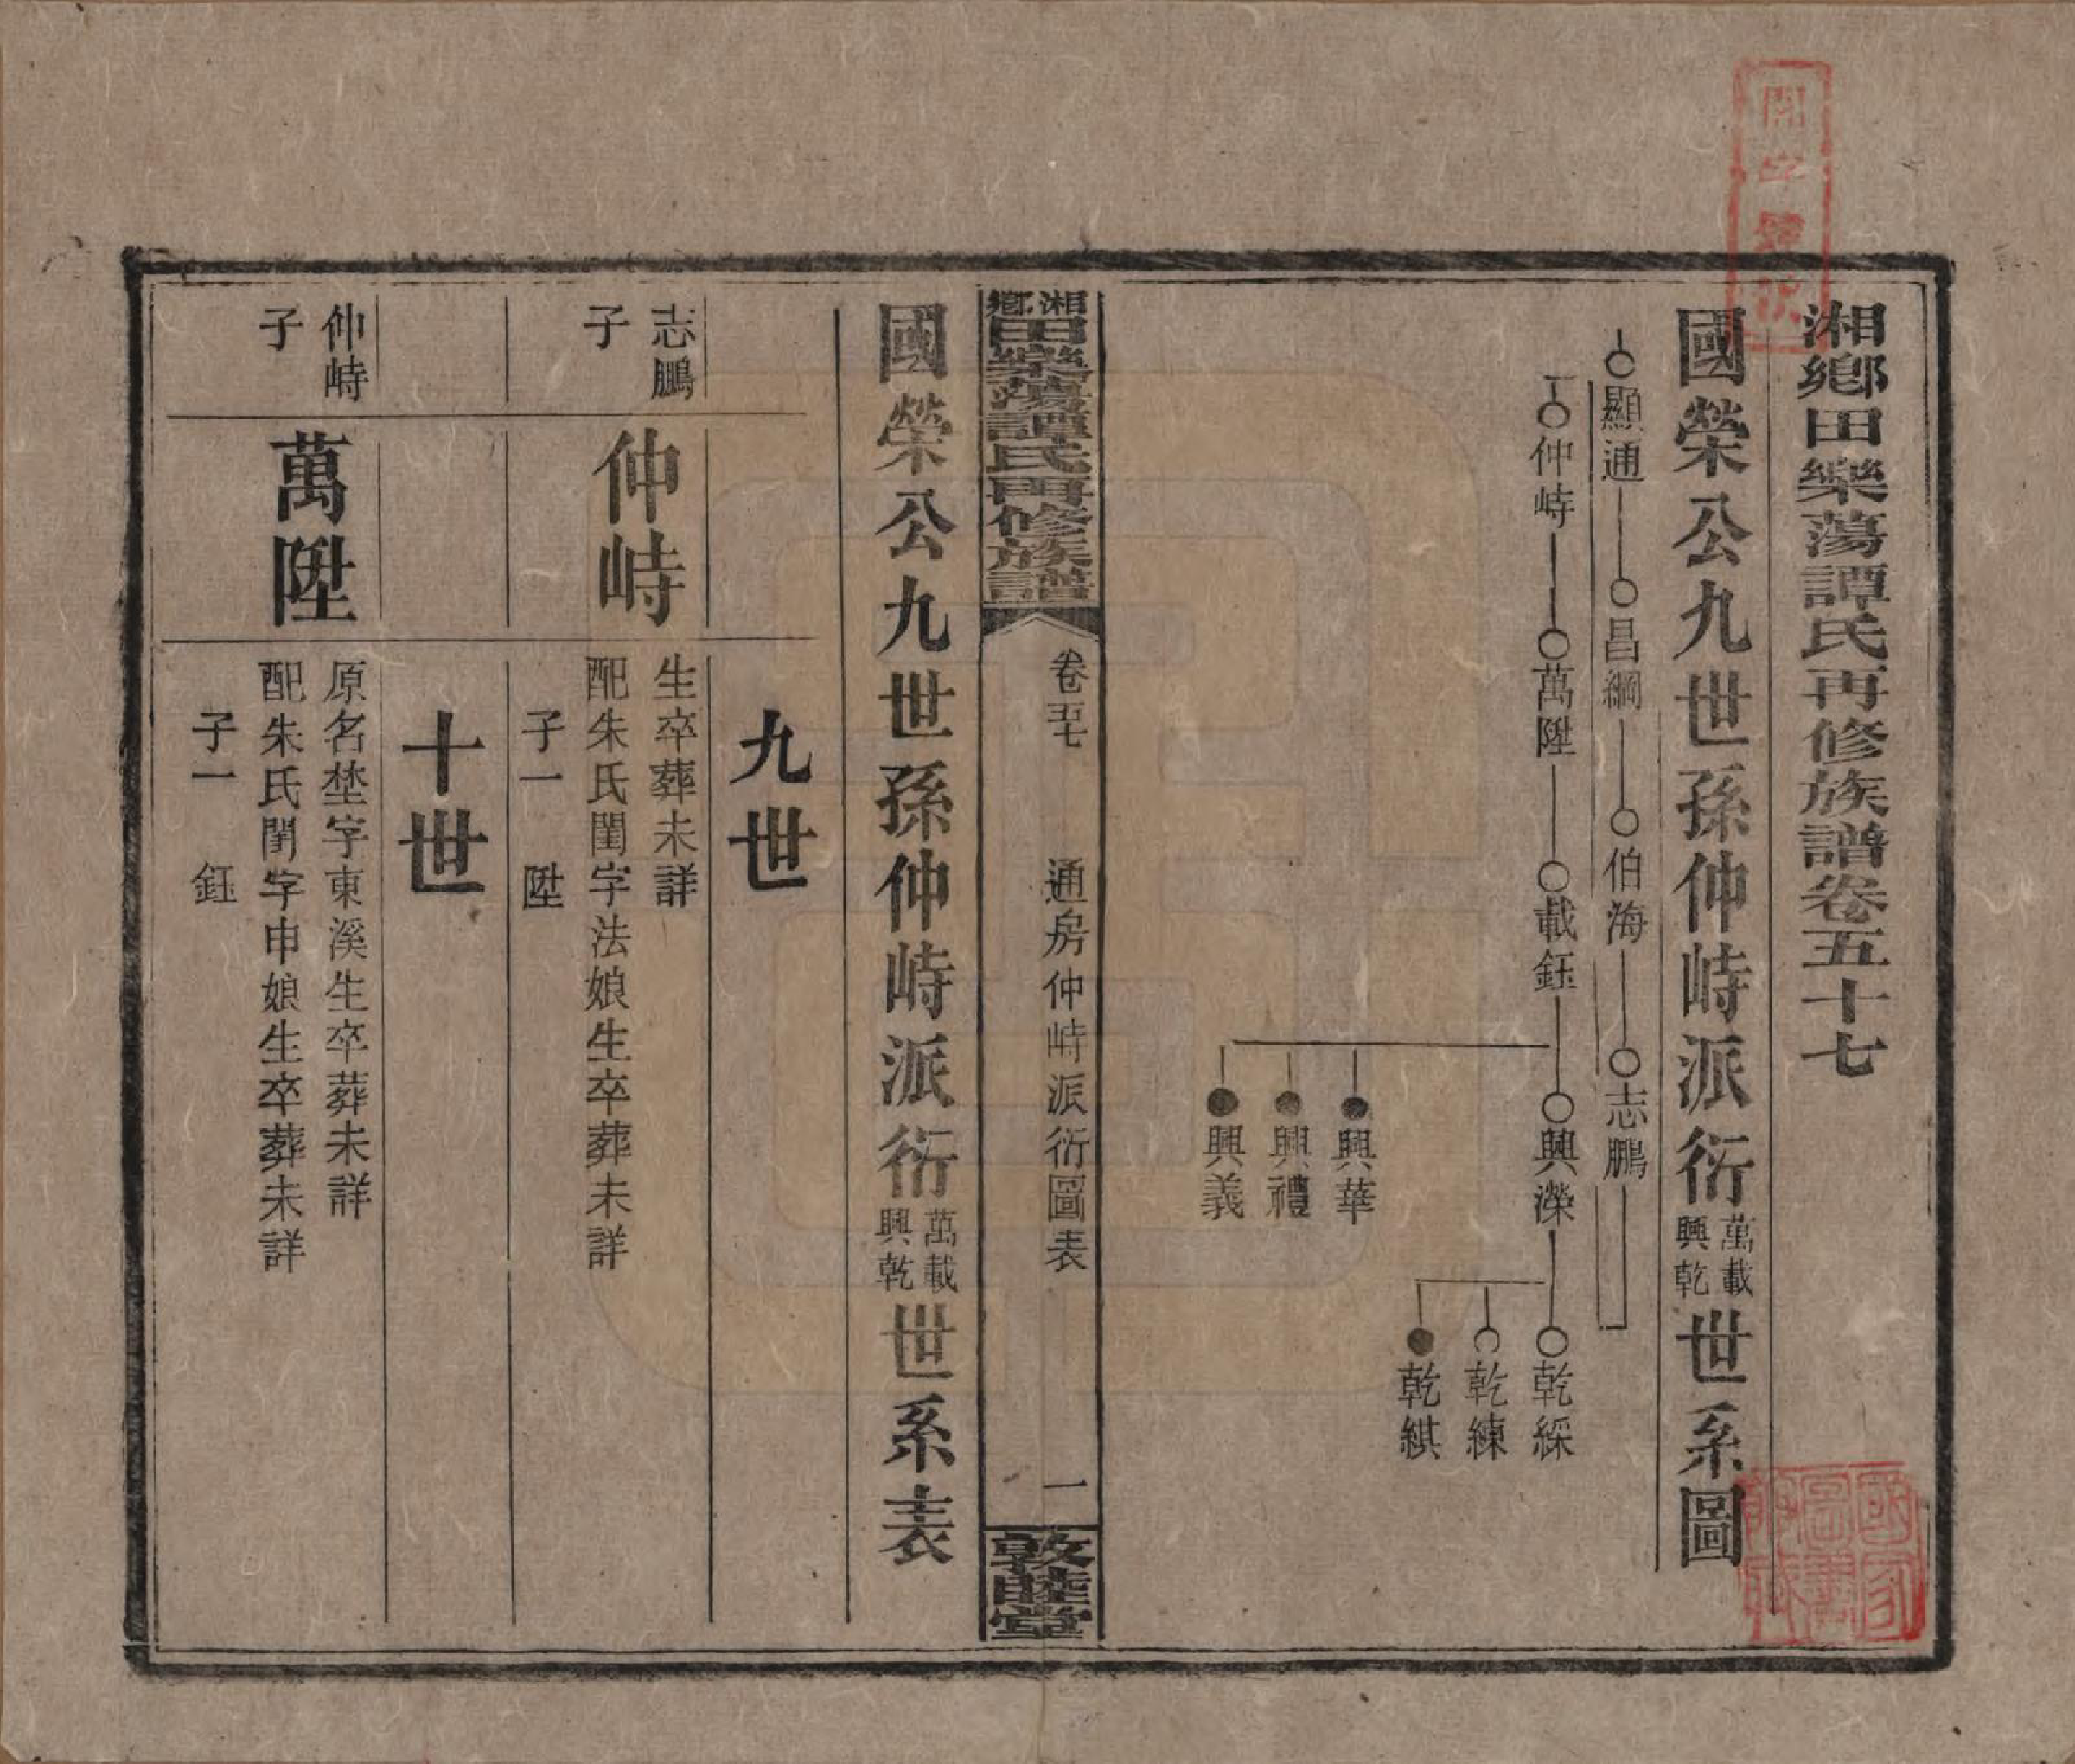 湘鄉田樂蕩譚氏再修族譜卷五十七
國榮公九世孫仲峙派衍萬載興乾世系圖
顯通
昌綱
伯海
志鵬
仲峙
萬陞
載鈺
興濚
興華
興禮
興義
乾綵
乾練
乾綨
湘鄉田樂蕩譚氏再修族譜
卷五七
通房仲峙派衍圖表
一
敦睦堂
國榮公九世孫仲峙派衍萬載興乾世系表
九世
志鵬
子
仲峙
生卒葬未詳
配朱氏閨字法娘生卒葬未詳
子一　陞
十世
仲峙
子
萬陞
原名埜字東溪生卒葬未詳
配朱氏閨字申娘生卒葬未詳
子一　鈺